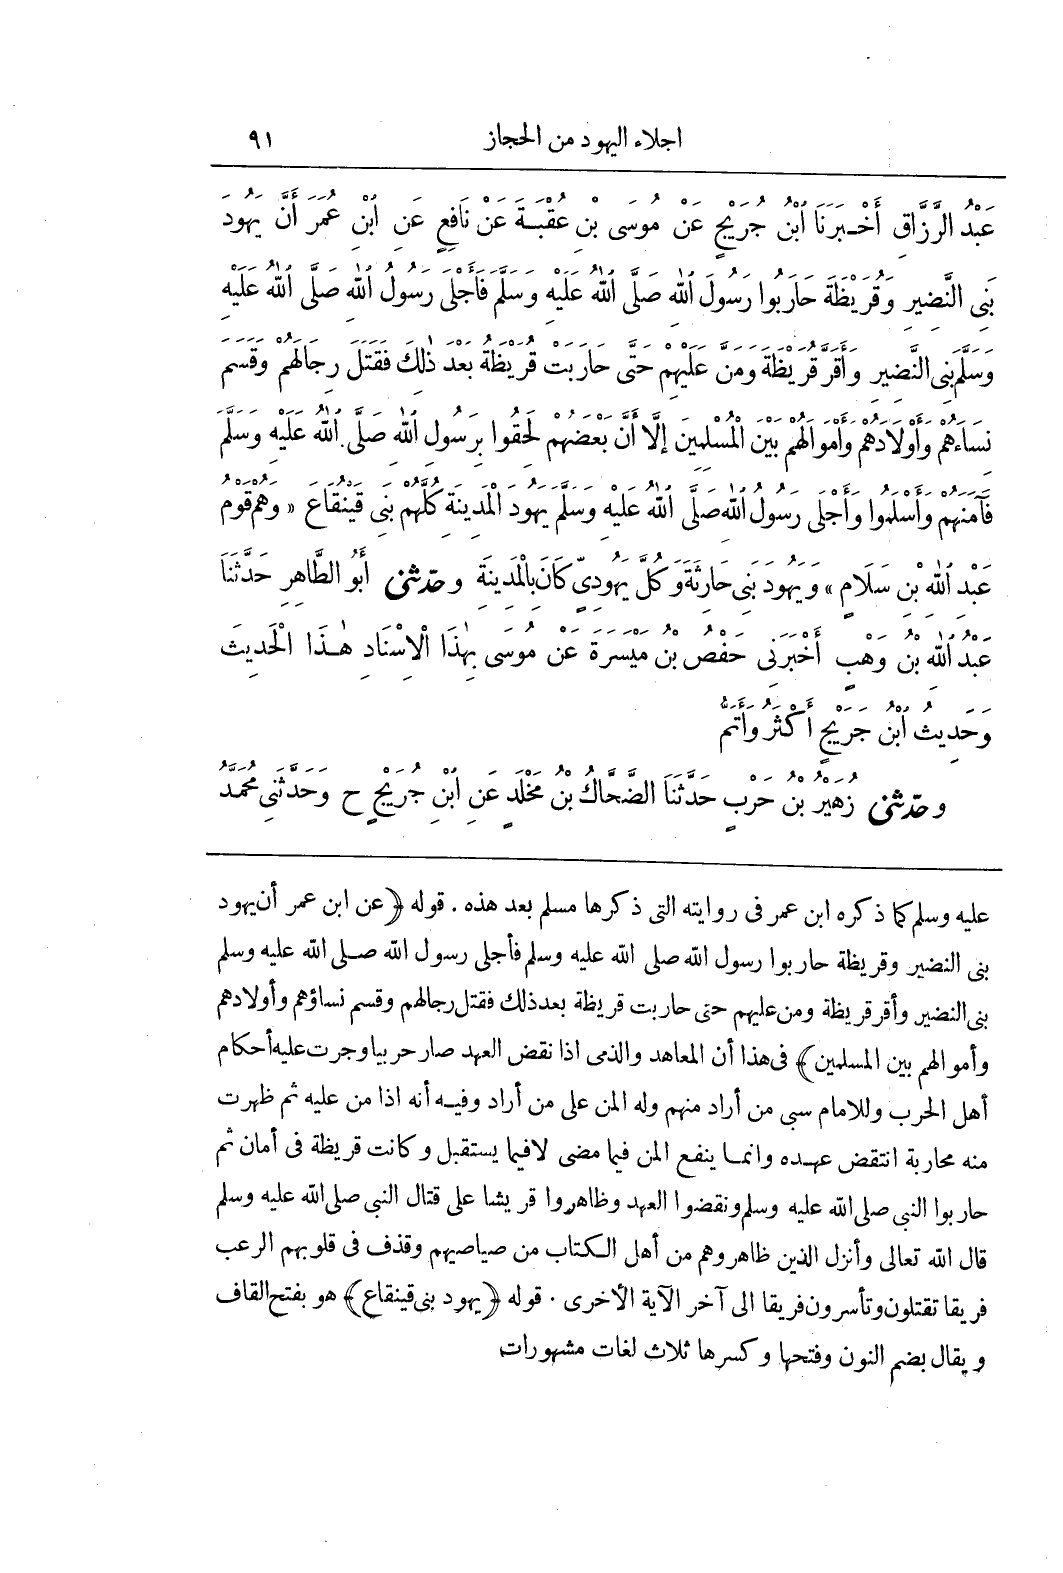 اجلاء اليهود من الحجاز ٩١
عَبْدُ الرَّزَّاقِ أَخْبَرَنَا ابْنُ جُرَيْجٍ عَنْ مُوسَى بْنِ عُقْبَةَ عَنْ نَافِعٍ عَنِ ابْنِ عُمَرَ أَنَّ يَهُودَ
بَنِى النَّضِيرِ وَقُرَيْظَةَ حَارَبُوا رَسُولَ اللهِ صَلَّى اللهُ عَلَيْهِ وَسَلَّمَ فَأَجْلَى رَسُولُ اللهِ صَلَّى اللهُ عَلَيْهِ
وَسَلَّمَ بَنِى النَّضِيرِ وَأَقَرَّ قُرَيْظَةَ وَمَنَّ عَلَيْهِمْ حَتَّى حَارَبَتْ قُرَيْظَةُ بَعْدَ ذٰلِكَ فَقَتَلَ رِجَالَهُمْ وَقَسَمَ
نِسَاءَهُمْ وَأَوْلَادَهُمْ وَأَمْوَالَهُمْ بَيْنَ الْمُسْلِمِينَ إِلَّا أَنَّ بَعْضَهُمْ لَحِقُوا بِرَسُولِ اللهِ صَلَّى اللهُ عَلَيْهِ وَسَلَّمَ
فَآمَنَهُمْ وَأَسْلَمُوا وَأَجْلَى رَسُولُ اللهِ صَلَّى اللهُ عَلَيْهِ وَسَلَّمَ يَهُودَ الْمَدِينَةِ كُلَّهُمْ بَنِى قَيْنُقَاعَ «وَهُمْ قَوْمُ
عَبْدِ اللهِ بْنِ سَلَامٍ» وَيَهُودَ بَنِى حَارِثَةَ وَكُلَّ يَهُودِىٍّ كَانَ بِالْمَدِينَةِ وحَدَّثَنِى أَبُو الطَّاهِرِ حَدَّثَنَا
عَبْدُ اللهِ بْنُ وَهْبٍ أَخْبَرَنِى حَفْصُ بْنُ مَيْسَرَةَ عَنْ مُوسَى بِهٰذَا الْإِسْنَادِ هٰذَا الْحَدِيثَ
وَحَدِيثُ ابْنِ جُرَيْجٍ أَكْثَرُ وَأَتَمُّ
وحَدَّثَنِى زُهَيْرُ بْنُ حَرْبٍ حَدَّثَنَا الضَّحَّاكُ بْنُ مَخْلَدٍ عَنِ ابْنِ جُرَيْجٍ ح وَحَدَّثَنِى مُحَمَّدُ
عليه وسلم كما ذكره ابن عمر فى روايته التى ذكرها مسلم بعد هذه . قوله ﴿عن ابن عمر أن يهود
بنى النضير وقريظة حاربوا رسول الله صلى الله عليه وسلم فأجلى رسول الله صلى الله عليه وسلم
بنى النضير وأقر قريظة ومن عليهم حتى حاربت قريظة بعد ذلك فقتل رجالهم وقسم نساؤهم وأولادهم
وأموالهم بين المسلمين﴾ فى هذا أن المعاهد والذمى اذا نقض العهد صار حربيا وجرت عليه أحكام
أهل الحرب وللامام سبى من أراد منهم وله المن على من أراد وفيه أنه اذا من عليه ثم ظهرت
منه محاربة انتقض عهده وانما ينفع المن فيما مضى لا فيما يستقبل وكانت قريظة فى أمان ثم
حاربوا النبى صلى الله عليه وسلم ونقضوا العهد وظاهروا قريشا على قتال النبى صلى الله عليه وسلم
قال الله تعالى وأنزل الذين ظاهروهم من أهل الكتاب من صياصيهم وقذف فى قلوبهم الرعب
فريقا تقتلون وتأسرون فريقا الى آخر الآية الأخرى . قوله ﴿يهود بنى قينقاع﴾ هو بفتح القاف
ويقال بضم النون وفتحها وكسرها ثلاث لغات مشهورات